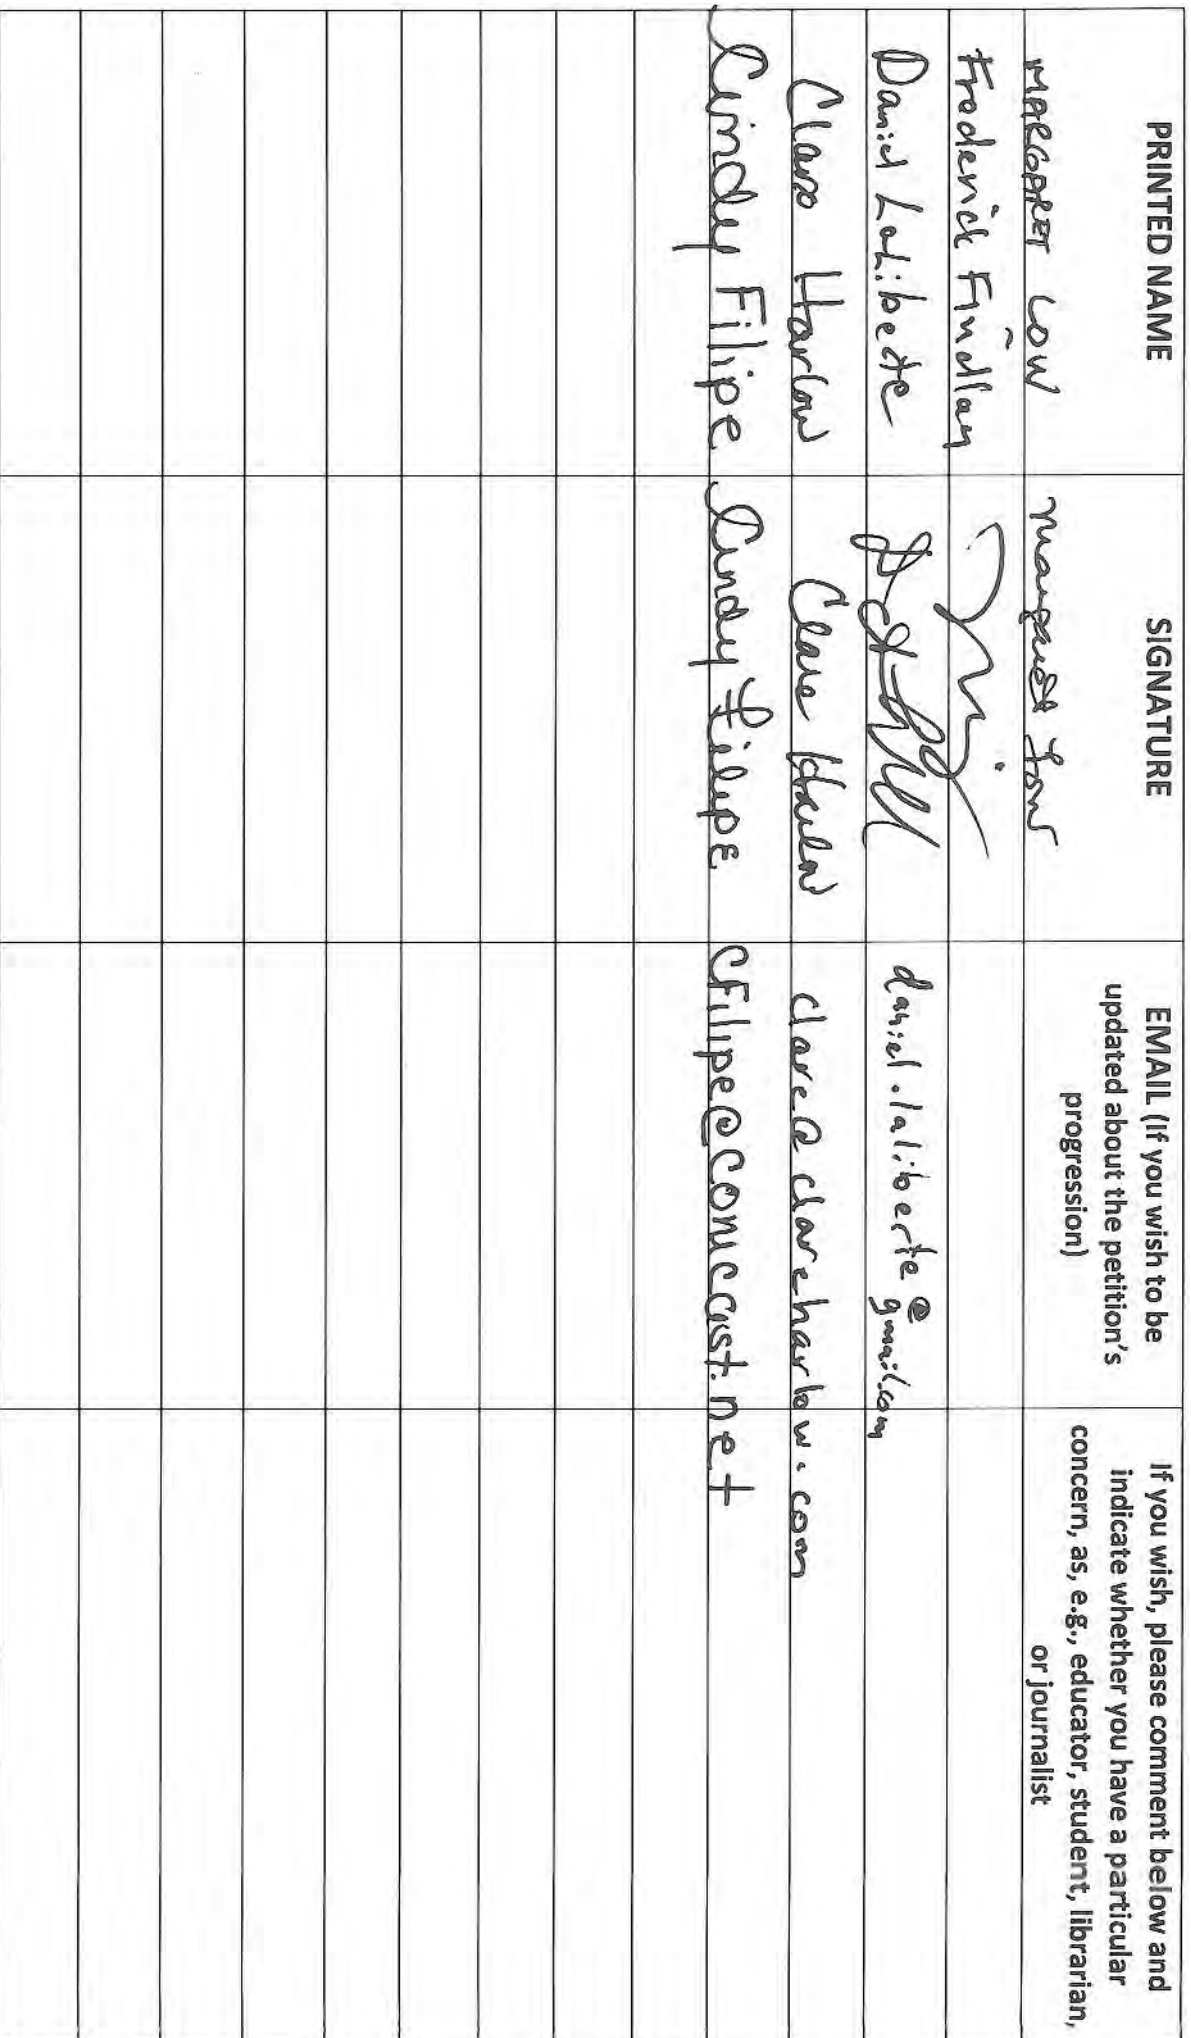 PRINTED NAME
SIGNATURE
EMAIL (If you wish to be
updated about the petition's
progression)
If you wish, please comment below and
indicate whether you have a particular
concern, as, e.g., educator, student, librarian,
or journalist
MARGARET LOW
Margaret Low
Frederick Findlay
Daniel LaLiberte
daniel.laliberte@
gmail.com
Clare Harlow
Clare Harlow
clare@clareharlow.com
Cindy Filipe
Cindy Filipe
CFilipe@comcast.net